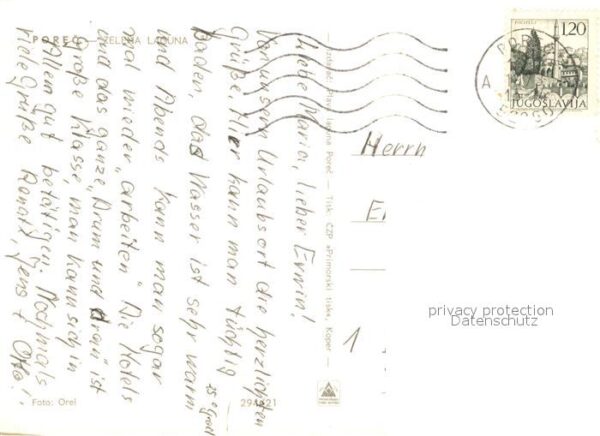 POREČ - ZELENA LAGUNA
Liebe Maria, lieber Erwin!
Von unserem Urlaubsort die herzlichsten
Grüße. Hier kann man tüchtig
baden, das Wasser ist sehr warm
25° Grad
und Abends kann man sogar
mal wieder „arbeiten“. Die Hotels
und das ganze „Drum und dran“ ist
große Klasse, man kann sich in
Allem gut betätigen. Nochmals
viele Grüße Renate, Jens + Otto!
Foto: Orel
294621
Izdavač: Plava laguna Poreč — Tisk ČZP »Primorski tisk«, Koper —
1,20
JUGOSLAVIJA
POREČ
A
Herrn
1
privacy protection
Datenschutz